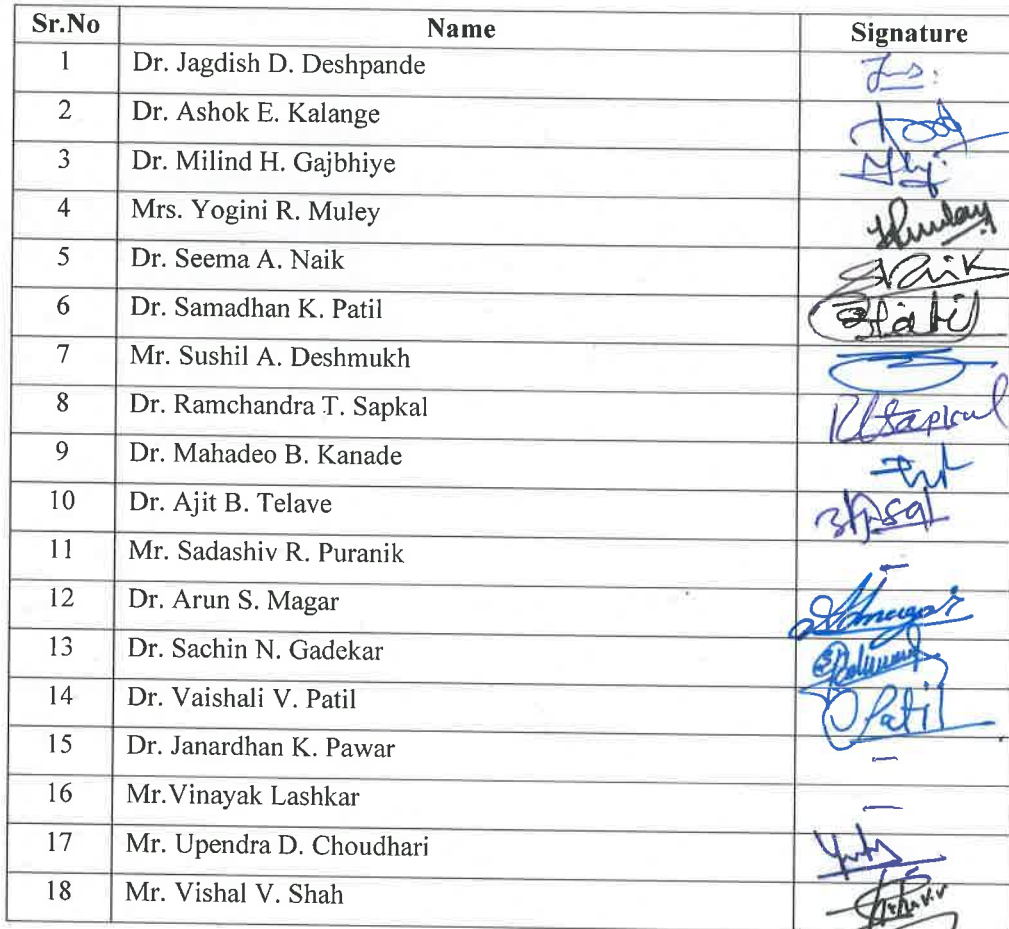 Sr.No Name Signature
1 Dr. Jagdish D. Deshpande
2 Dr. Ashok E. Kalange
3 Dr. Milind H. Gajbhiye
4 Mrs. Yogini R. Muley
5 Dr. Seema A. Naik
6 Dr. Samadhan K. Patil Patil
7 Mr. Sushil A. Deshmukh
8 Dr. Ramchandra T. Sapkal
9 Dr. Mahadeo B. Kanade
10 Dr. Ajit B. Telave
11 Mr. Sadashiv R. Puranik -
12 Dr. Arun S. Magar
13 Dr. Sachin N. Gadekar
14 Dr. Vaishali V. Patil Patil
15 Dr. Janardhan K. Pawar -
16 Mr.Vinayak Lashkar -
17 Mr. Upendra D. Choudhari
18 Mr. Vishal V. Shah